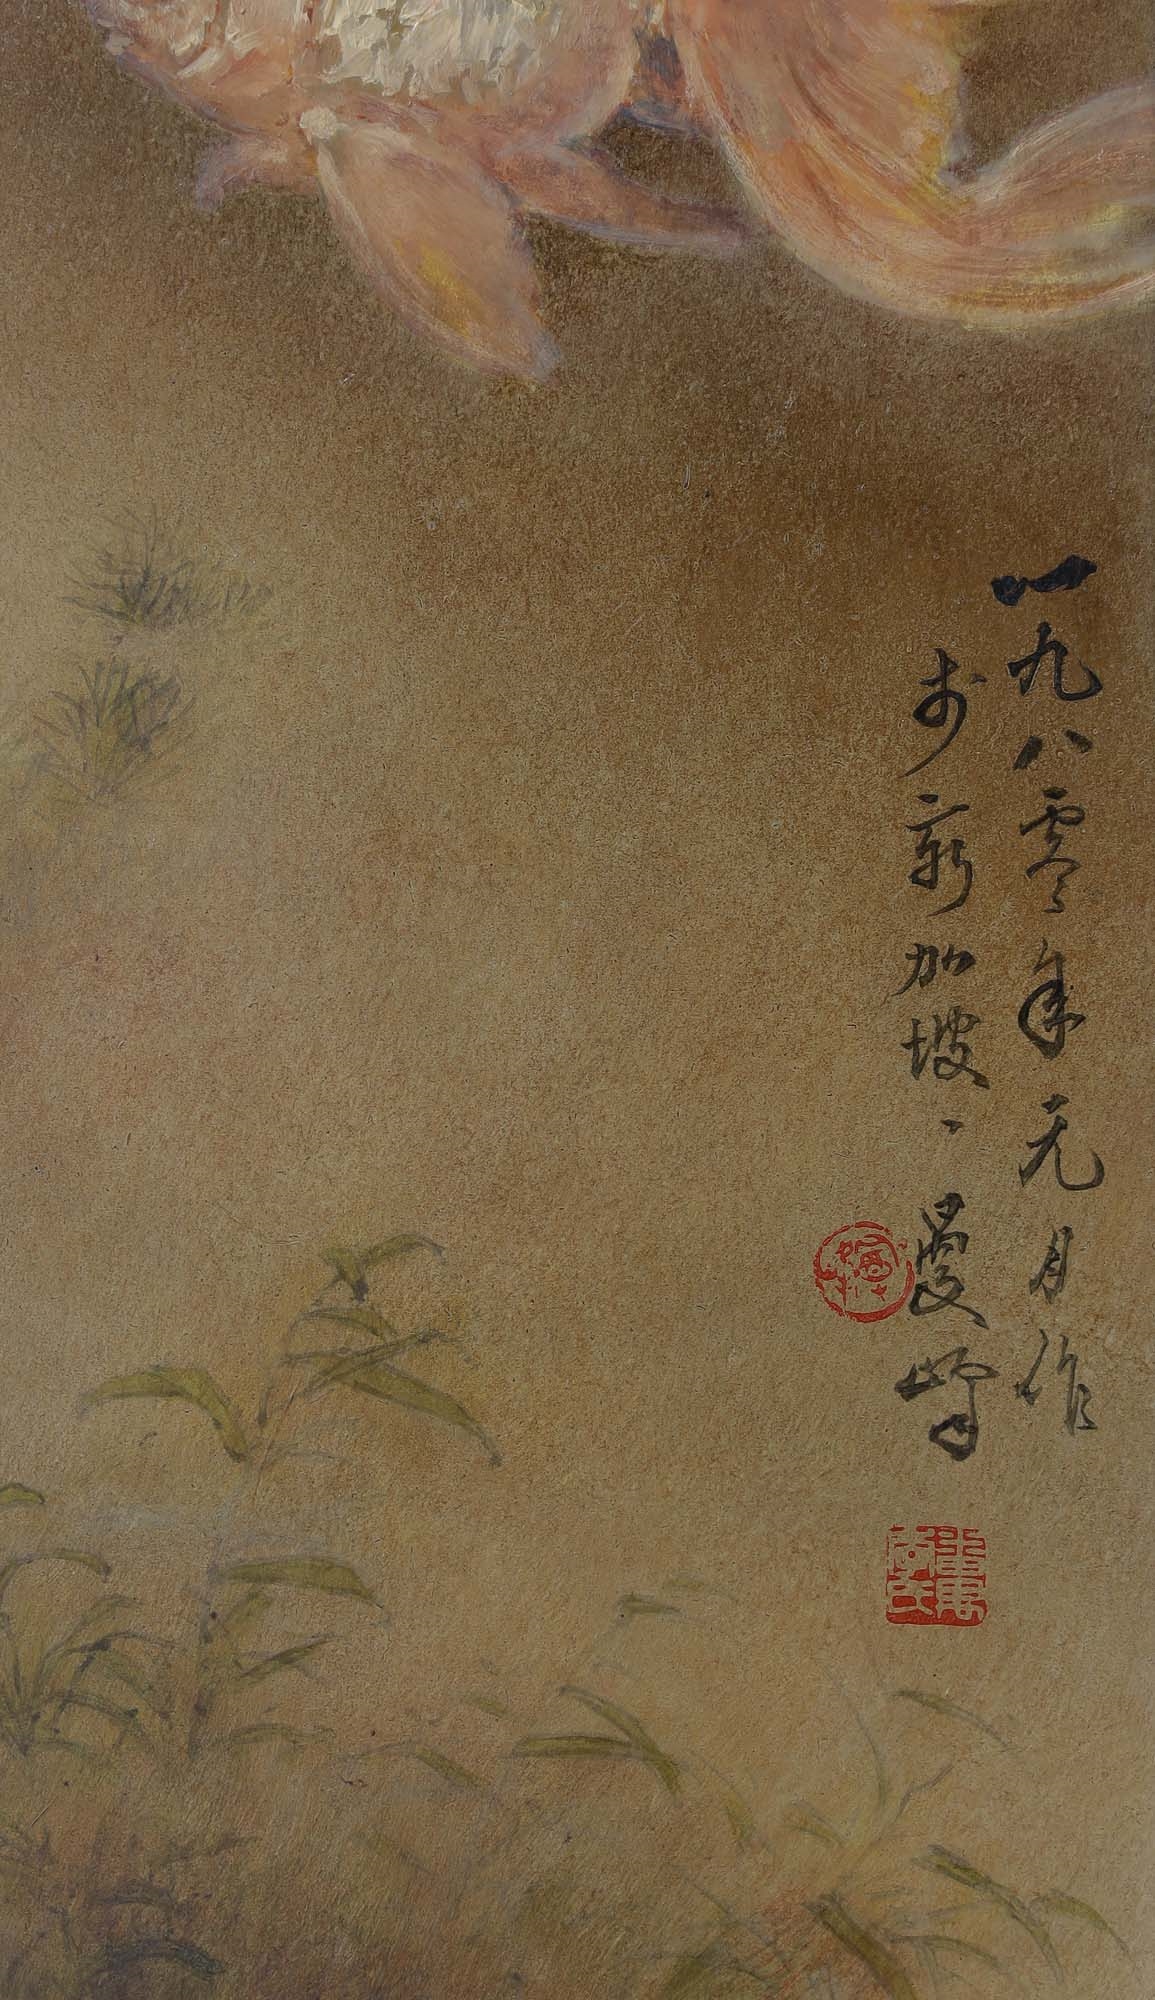 一九八零年元月作
於新加坡、曼峰